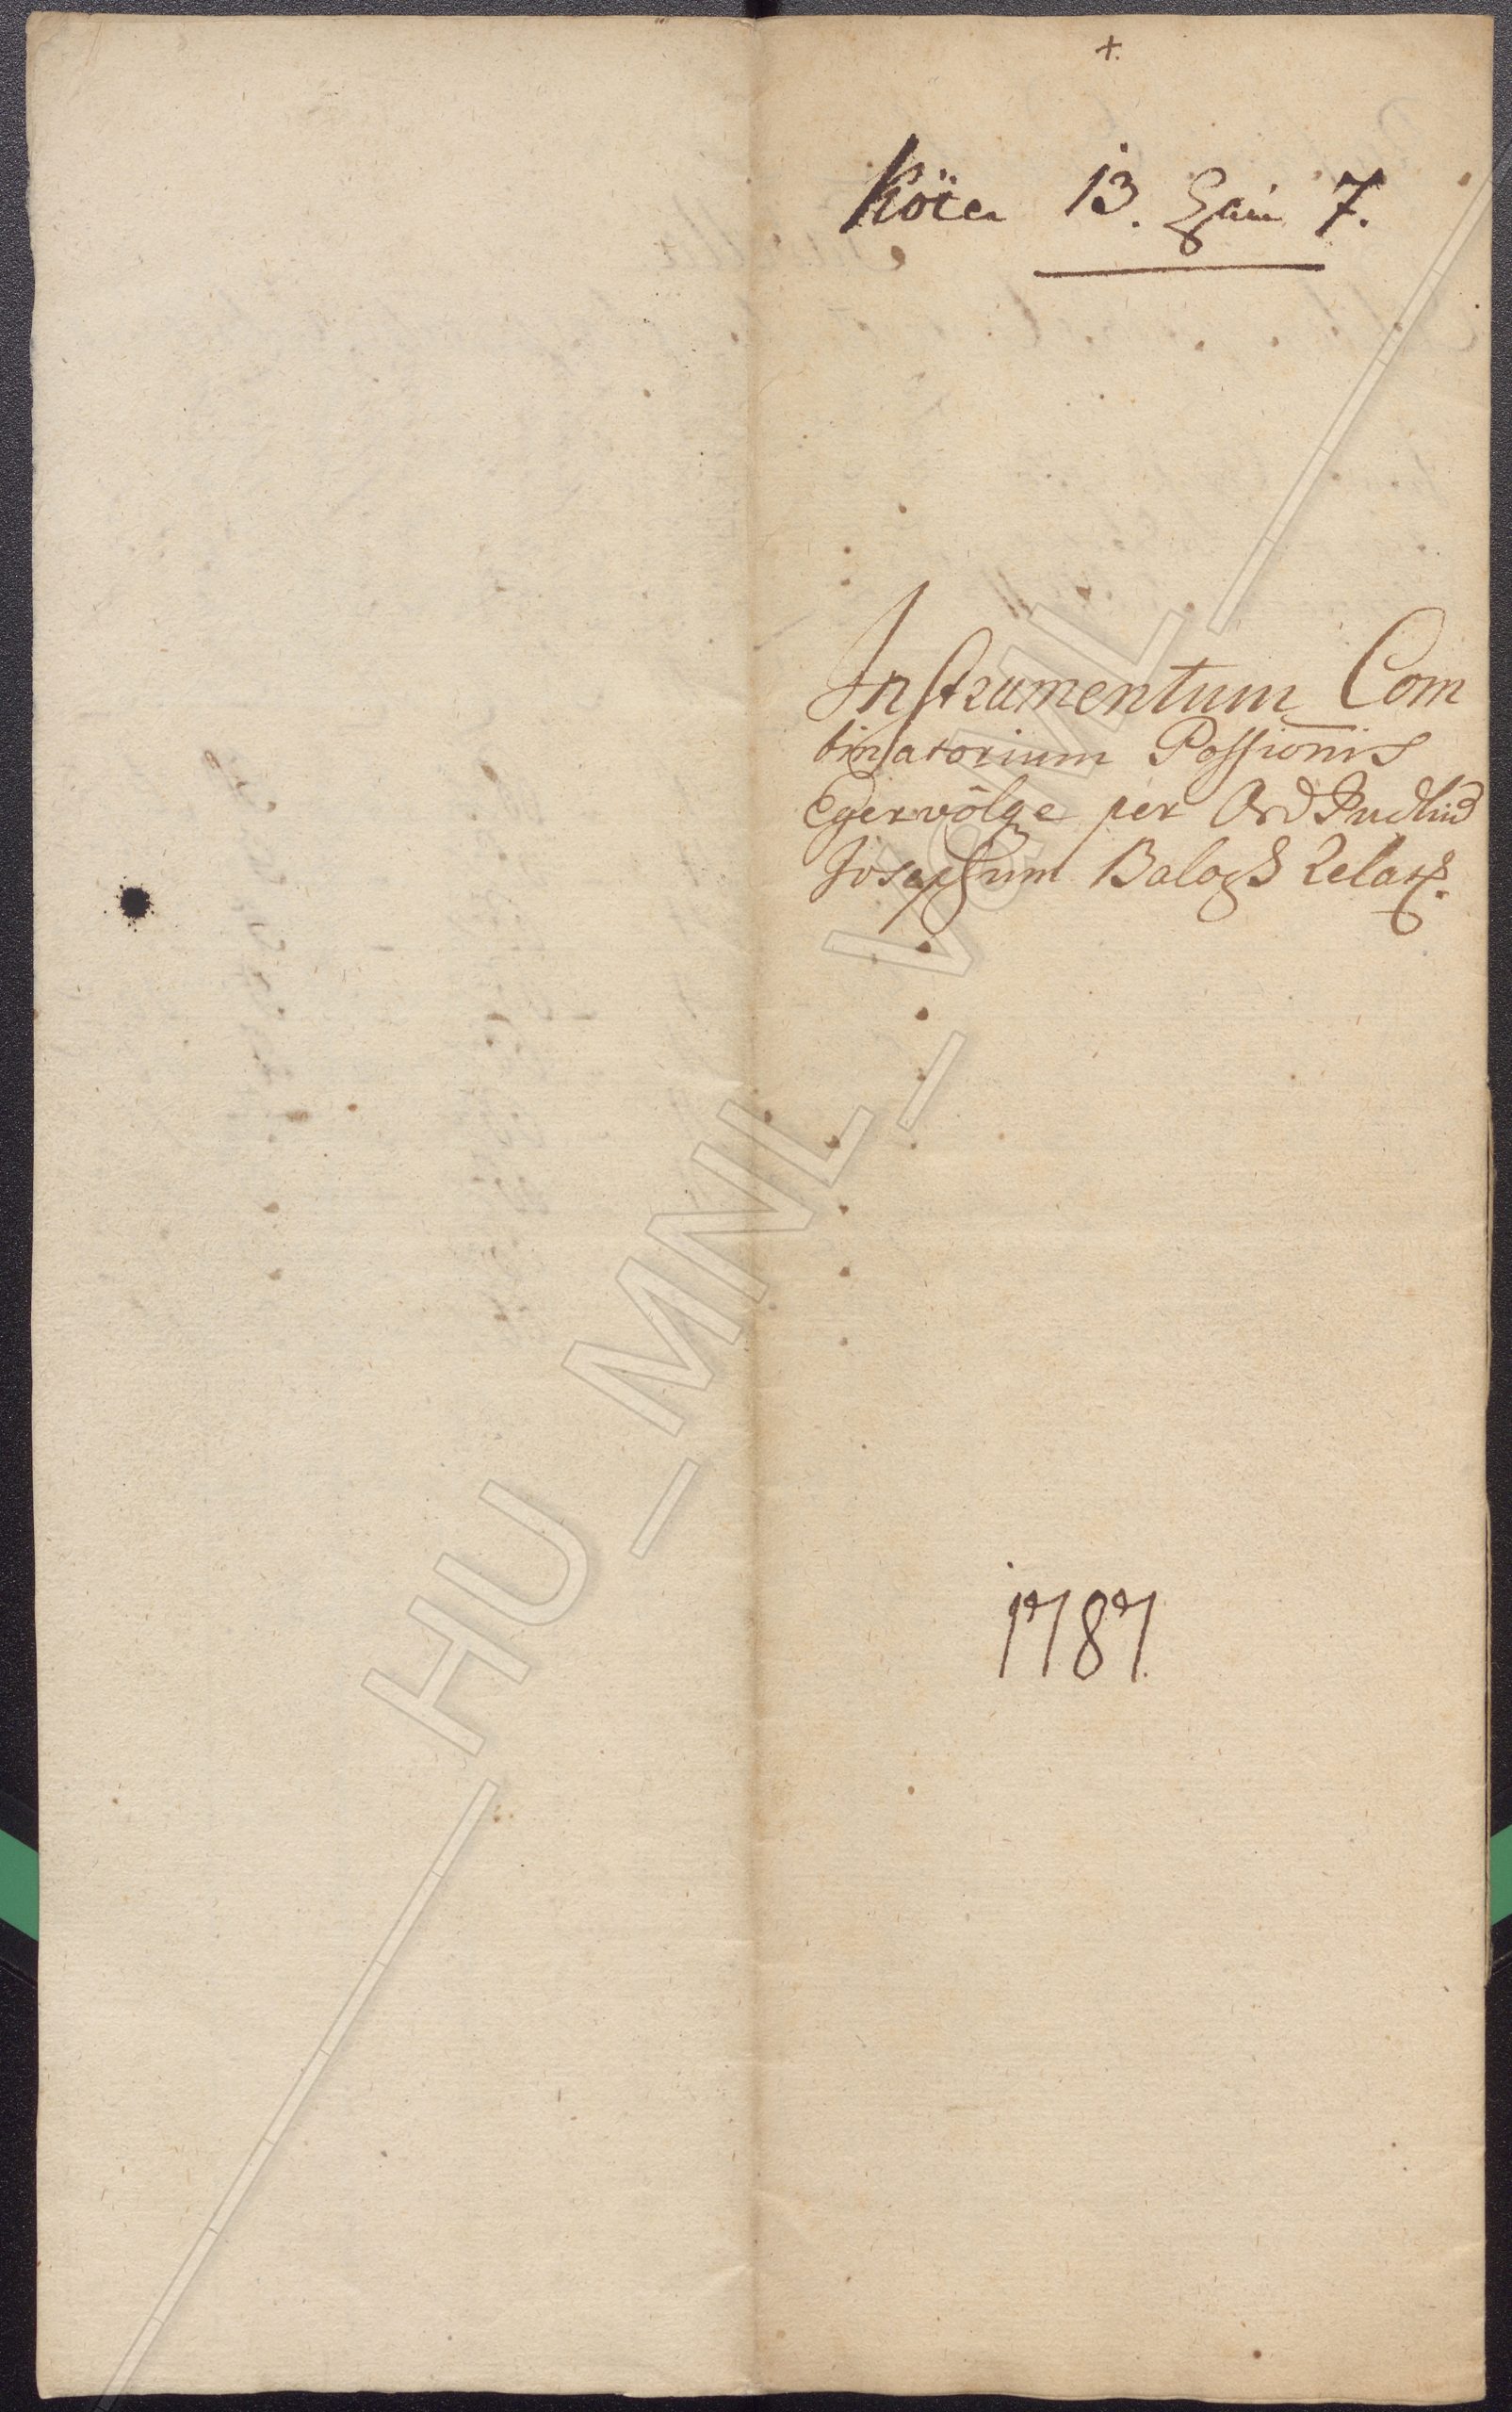 +.
Köteg 13. Szám 7.
Instrumentum Com
binatorium Possionis
Egervölge per Ord Judlium
Josephum Balogh Relat.
1787.
HU_MNL_VaML